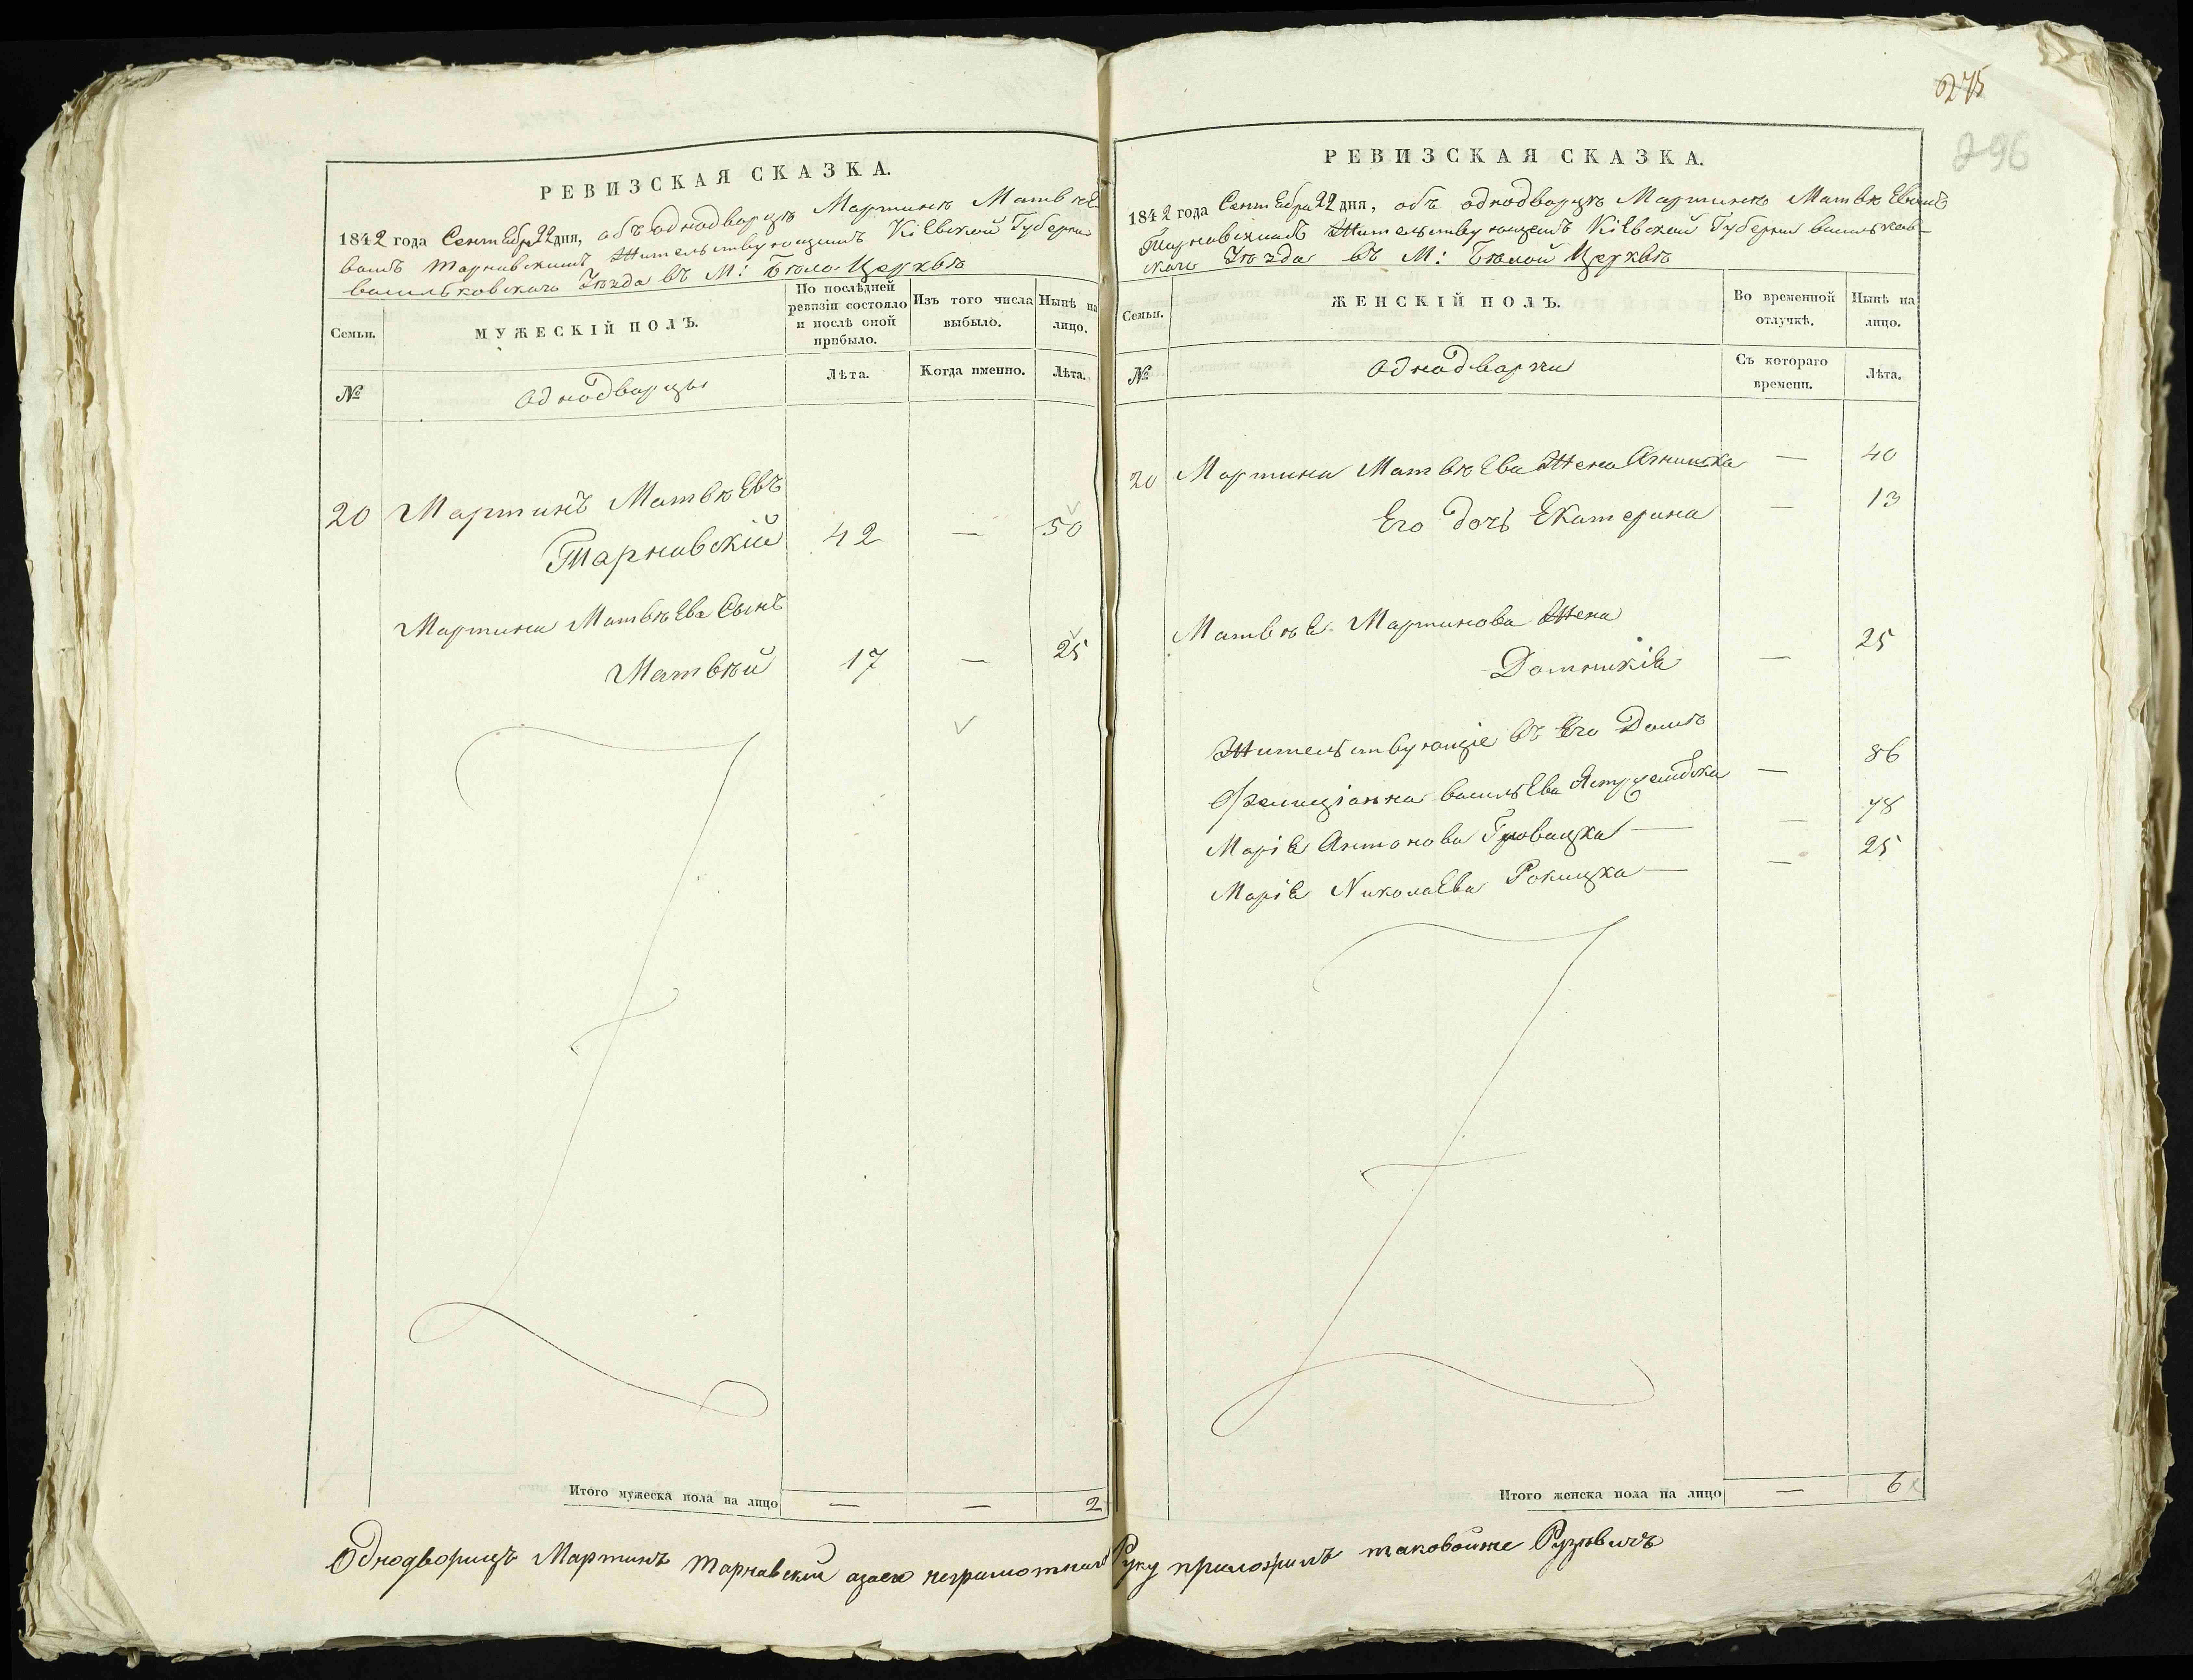 275
296
РЕВИЗСКАЯ СКАЗКА.
1842 года Сентебря 22 дня, объ однодворцѣ Мартинѣ Матвѣе-
вомъ Тарнавскимъ Жительствующимъ Кіевской Губерніи
васильковскаго Уѣзда въ М: Бѣло Церквѣ
Семьи.
МУЖЕСКІЙ ПОЛЪ.
По послѣдней ревизіи состояло и послѣ оной прибыло.
Изъ того числа выбыло.
Нынѣ на лицо.
№
однодворцы
Лѣта.
Когда именно.
Лѣта.
20 Мартинъ Матвѣевъ
Тарнавскій 42 — 50
Мартина Матвѣева Сынъ
Матвѣй 17 — 25
Итого мужеска пола на лицо — — 2
РЕВИЗСКАЯ СКАЗКА.
1842 года Сентебря 22 дня, объ однодворцѣ Мартинѣ Матвѣевомъ
Тарнавскимъ Жительствующемъ Кіевской Губерніи васильков-
скаго Уѣзда въ М: Бѣлой Церквѣ
Семьи.
ЖЕНСКІЙ ПОЛЪ.
Во временной отлучкѣ.
Нынѣ на лицо.
№
однодворки
Съ котораго времени.
Лѣта.
20 Мартина Матвѣева Жена Агнишка — 40
Его дочь Екатерина — 13
Матвѣе Мартинова Жена
Домникіе — 25
Жительствующіе въ Его Домѣ
Фелиціанна васильева — 86
Маріе Антонова — 78
Маріе Николаева Рокицка — 25
Итого женска пола на лицо — 6
Однодворицъ Мартинъ Тарнавскій неграмотный Руку приложилъ таковойже